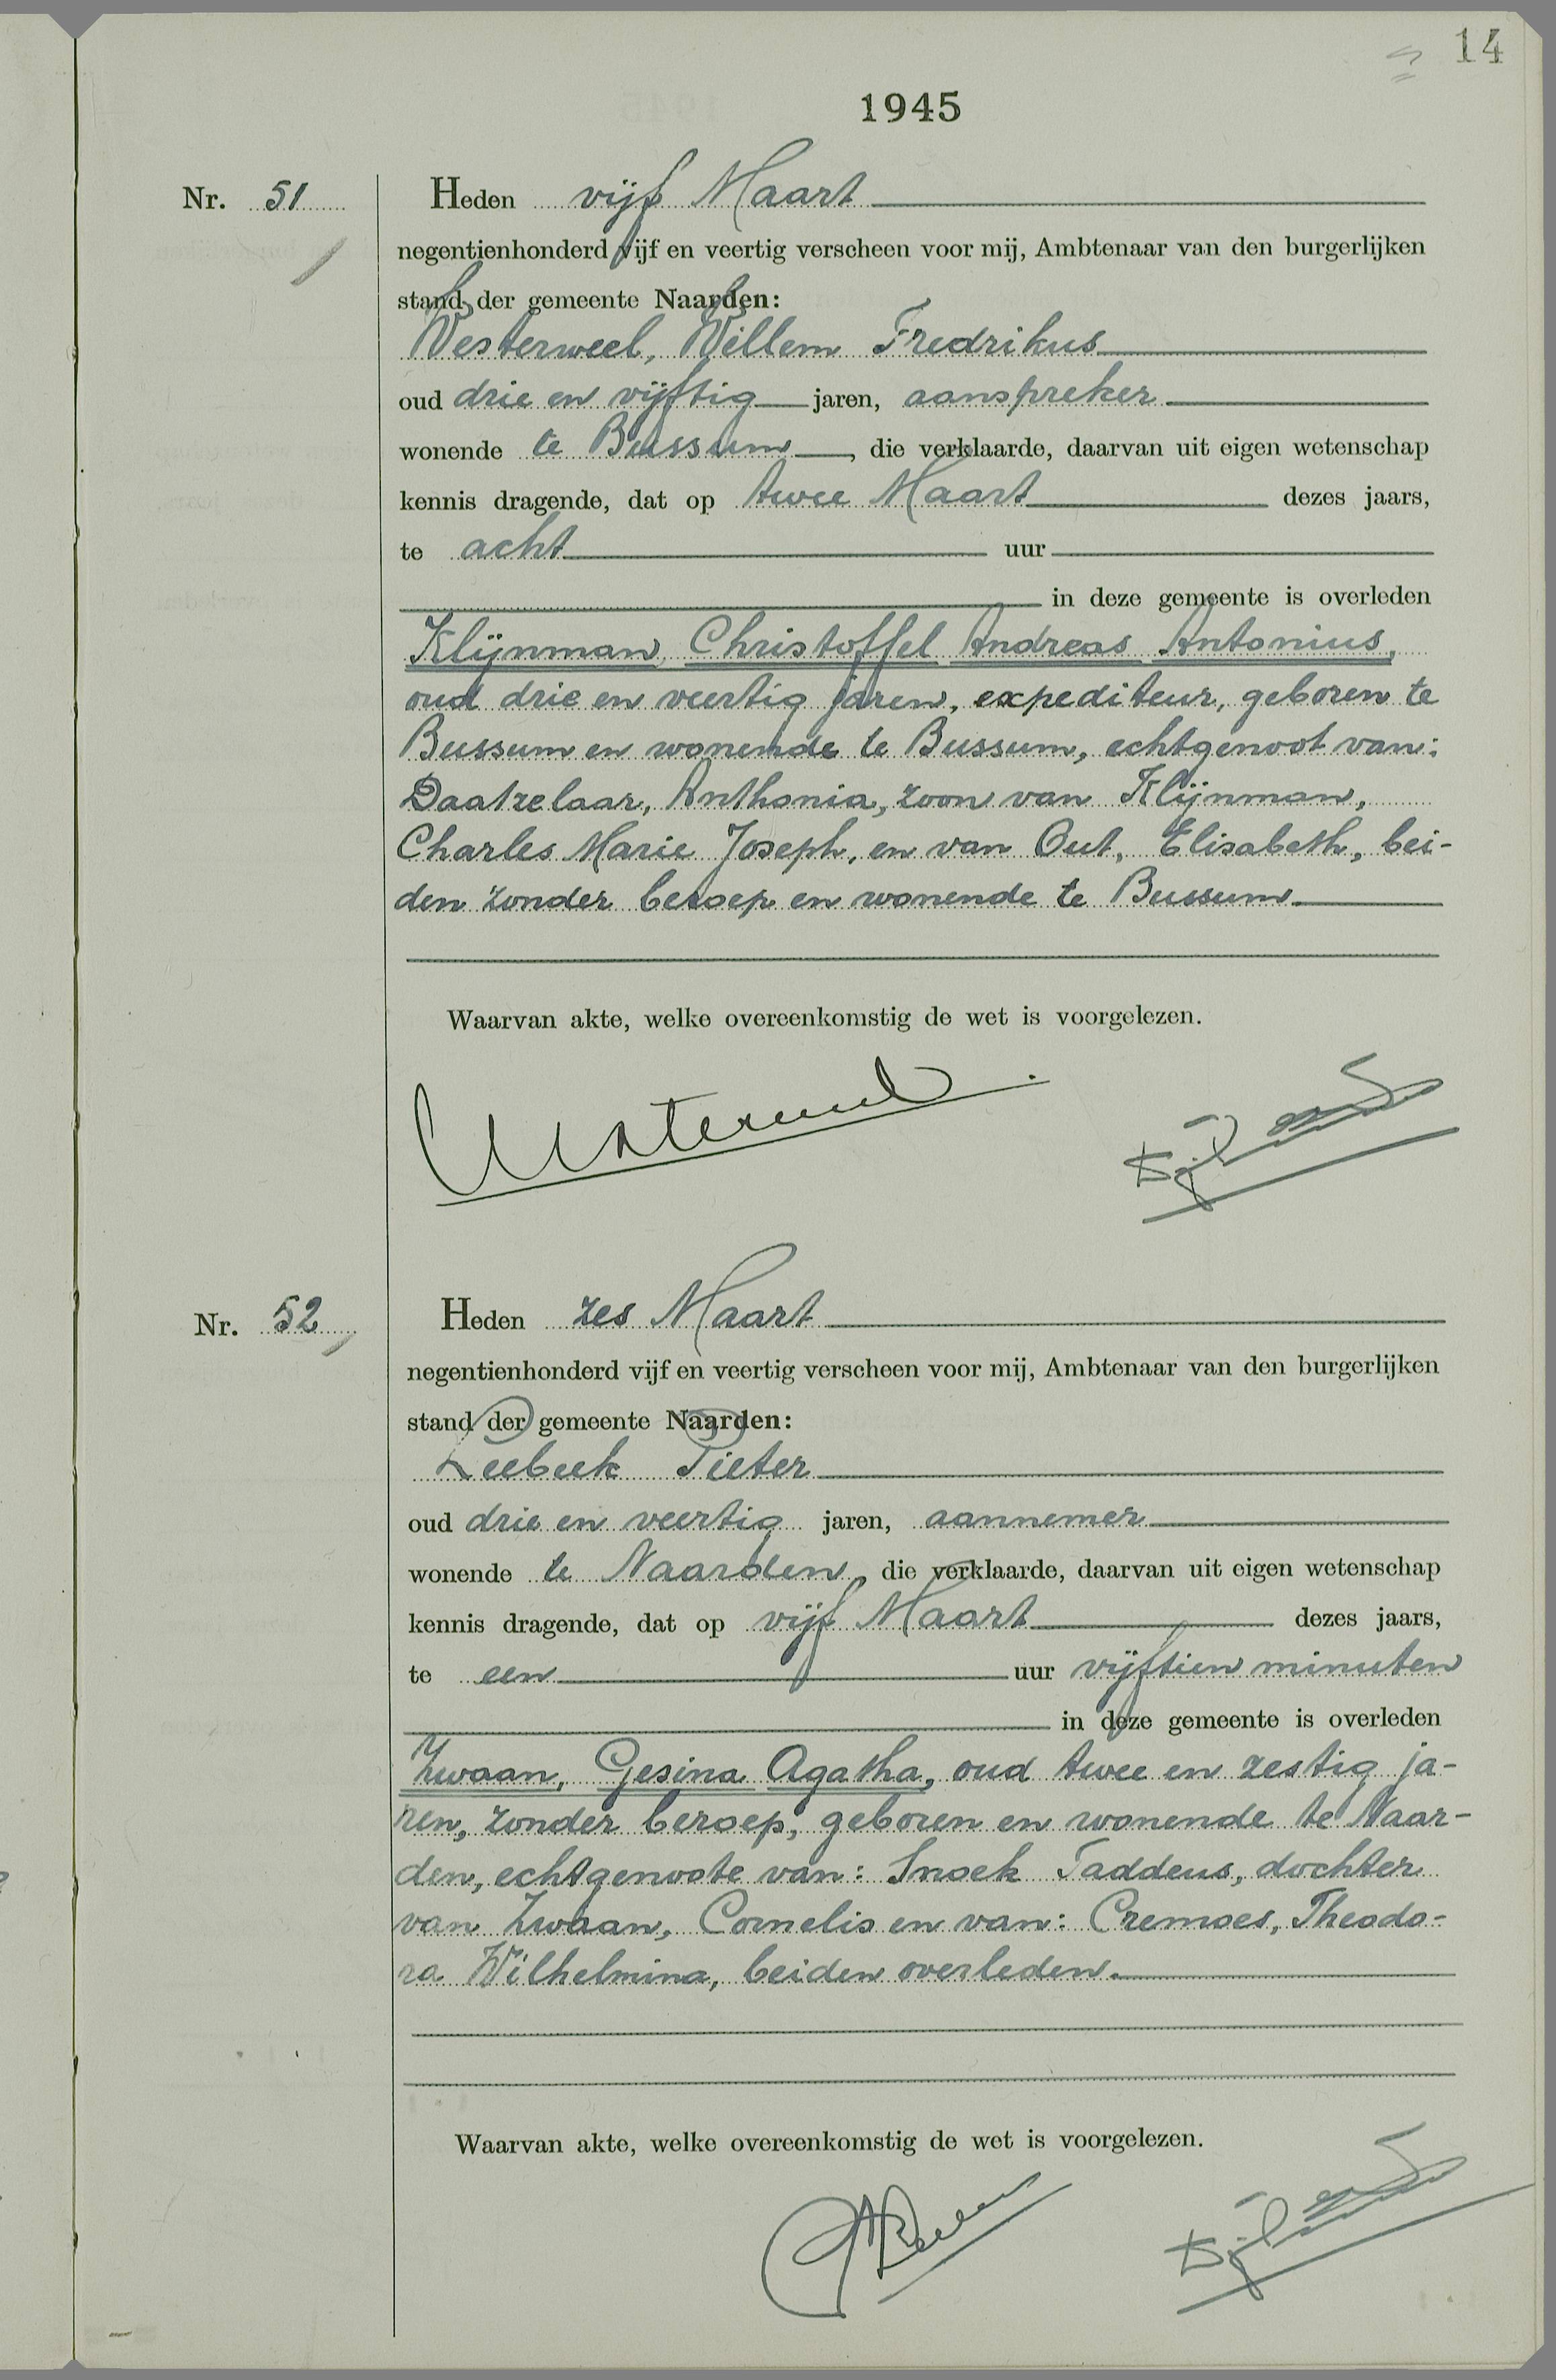 14
1945
Nr. 51
Heden vijf Maart
negentienhonderd vijf en veertig verscheen voor mij, Ambtenaar van den burgerlijken
stand der gemeente Naarden:
Westerweel, Willem Fredrikus
oud drie en vijftig jaren, aanspreker
wonende te Bussum, die verklaarde, daarvan uit eigen wetenschap
kennis dragende, dat op twee Maart dezes jaars,
te acht uur
in deze gemeente is overleden
Klijnman, Christoffel Andreas Antonius,
oud drie en veertig jaren, expediteur, geboren te
Bussum en wonende te Bussum, echtgenoot van:
Daatzelaar, Anthonia, zoon van Klijnman,
Charles Marie Joseph, en van Out, Elisabeth, bei-
den zonder beroep en wonende te Bussum.
Waarvan akte, welke overeenkomstig de wet is voorgelezen.
Nr. 52
Heden zes Maart
negentienhonderd vijf en veertig verscheen voor mij, Ambtenaar van den burgerlijken
stand der gemeente Naarden:
Leebeek Pieter
oud drie en veertig jaren, aannemer
wonende te Naarden, die verklaarde, daarvan uit eigen wetenschap
kennis dragende, dat op vijf Maart dezes jaars,
te een uur vijftien minuten
in deze gemeente is overleden
Zwaan, Gesina Agatha, oud twee en zestig ja-
ren, zonder beroep, geboren en wonende te Naar-
den, echtgenoote van: Snoek Taddeus, dochter
van Zwaan, Cornelis en van: Cremoes, Theodo-
ra Wilhelmina, beiden overleden.
Waarvan akte, welke overeenkomstig de wet is voorgelezen.